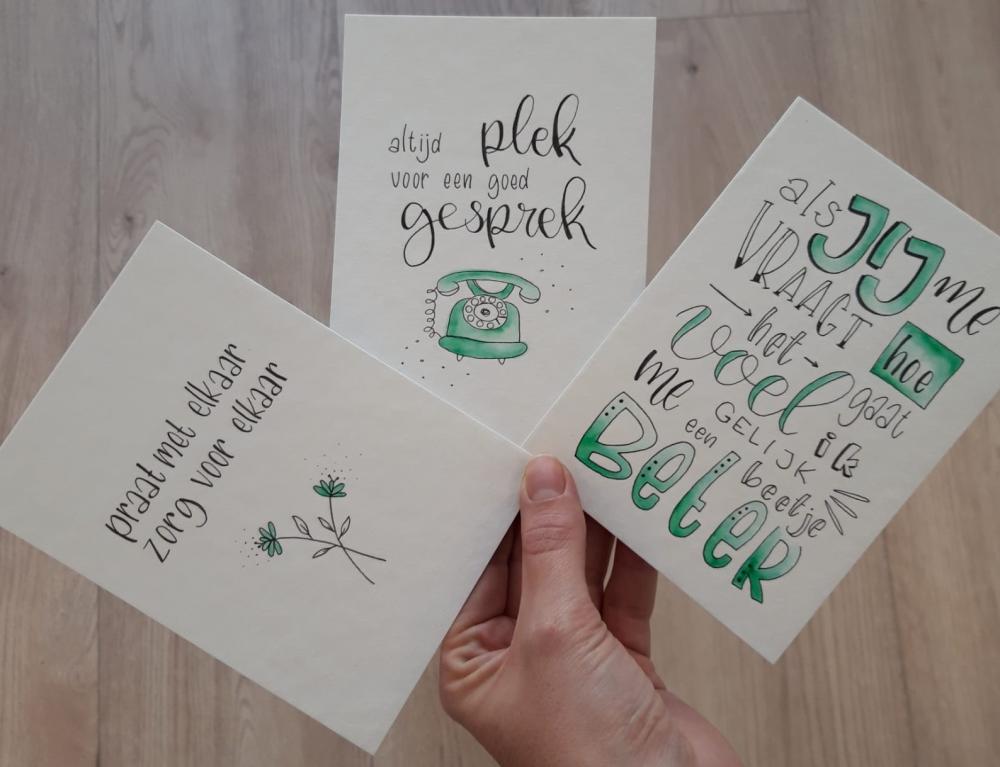 praat met elkaar
zorg voor elkaar
altijd plek
voor een goed
gesprek
als JIJ me
VRAAGT hoe
→ het → gaat
voel ik
me GELIJK
een beetje
BeteR